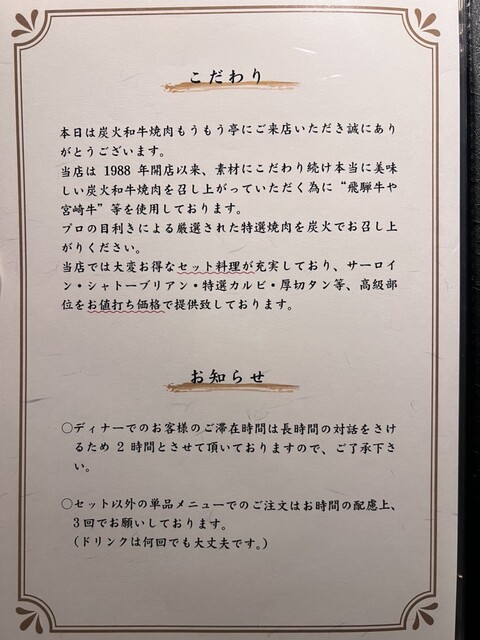 こだわり
本日は炭火和牛焼肉もうもう亭にご来店いただき誠にあり
がとうございます。
当店は 1988 年開店以来、素材にこだわり続け本当に美味
しい炭火和牛焼肉を召し上がっていただく為に“飛騨牛や
宮崎牛”等を使用しております。
プロの目利きによる厳選された特選焼肉を炭火でお召し上
がりください。
当店では大変お得なセット料理が充実しており、サーロイ
ン・シャトーブリアン・特選カルビ・厚切タン等、高級部
位をお値打ち価格で提供致しております。
お知らせ
○ディナーでのお客様のご滞在時間は長時間の対話をさけ
るため 2 時間とさせて頂いておりますので、ご了承下さ
い。
○セット以外の単品メニューでのご注文はお時間の配慮上、
3回でお願いしております。
(ドリンクは何回でも大丈夫です。)